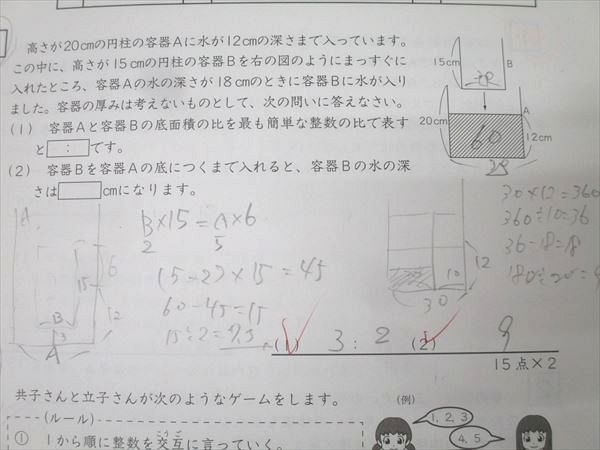 高さが20cmの円柱の容器Aに水が12cmの深さまで入っています。
この中に、高さが15cmの円柱の容器Bを右の図のようにまっすぐに
入れたところ、容器Aの水の深さが18cmのときに容器Bに水が入り
ました。容器の厚みは考えないものとして、次の問いに答えなさい。
(1) 容器Aと容器Bの底面積の比を最も簡単な整数の比で表す
と : です。
(2) 容器Bを容器Aの底につくまで入れると、容器Bの水の深
さは cmになります。
15cm
B
A
20cm
60
12cm
A
6
15
12
B
3
A
B×15=A×6
2 5
(5-2)×15=45
60-45=15
15÷2=7.5
10
12
30
30×12=360
360÷10=36
36-18=18
180÷20=9
(1) 3:2 (2) 9
15点×2
共子さんと立子さんが次のようなゲームをします。
(ルール)
① 1から順に整数を交互に言っていく。
こうご
(例)
1, 2, 3
4, 5